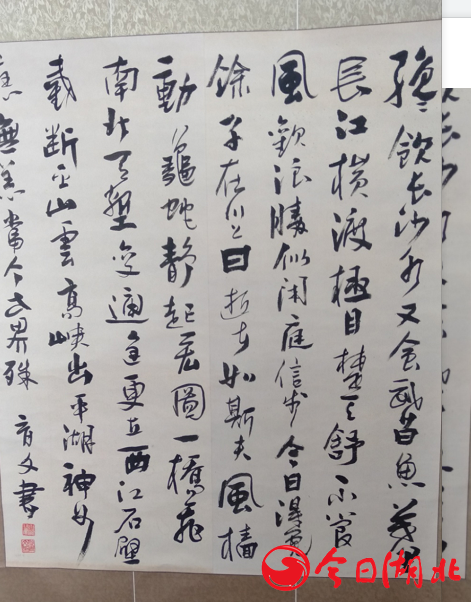 纔飲长沙水又食武昌魚萬里
長江横渡極目楚天舒不管
風吹浪勝似闲庭信步今日得寬
餘子在川上曰逝者如斯夫風檣
動龜蛇静起宏圖一橋飛
南北天塹变通途更立西江石壁
截断巫山雲高峡出平湖神女
應無恙當今世界殊 育文書
今日湖北